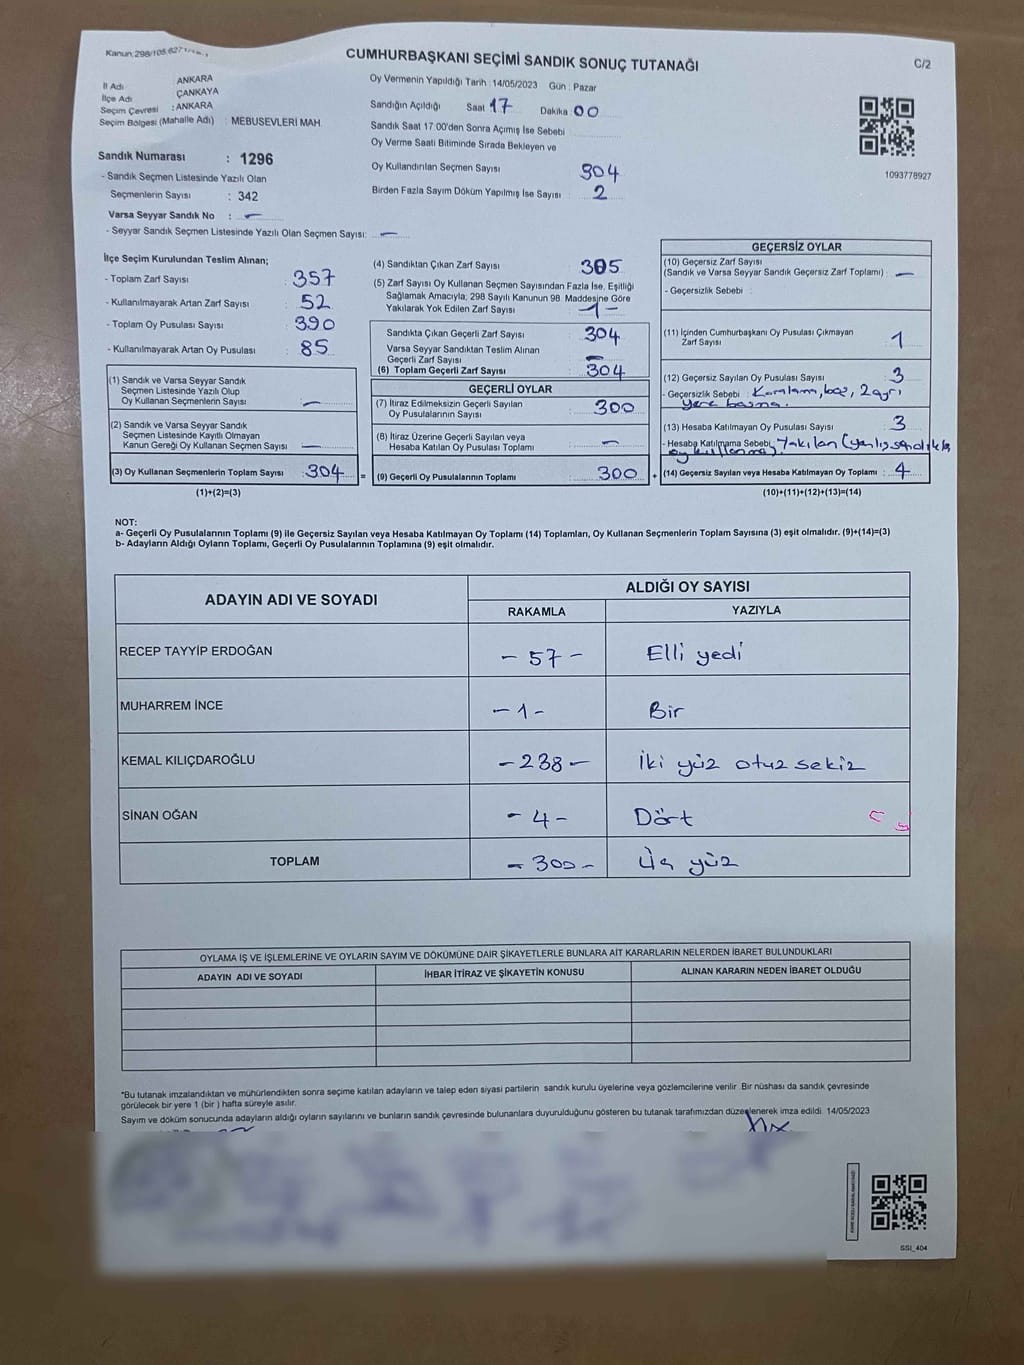 Kanun 298/105,6271/
CUMHURBAŞKANI SEÇİMİ SANDIK SONUÇ TUTANAĞI
C/2
İl Adı ANKARA
İlçe Adı ÇANKAYA
Seçim Çevresi : ANKARA
Seçim Bölgesi (Mahalle Adı) : MEBUSEVLERİ MAH.
Oy Vermenin Yapıldığı Tarih : 14/05/2023 Gün : Pazar
Sandığın Açıldığı Saat 17 Dakika : 00
Sandık Saat 17 00'den Sonra Açımış İse Sebebi
Oy Verme Saati Bitiminde Sırada Bekleyen ve
Oy Kullandırılan Seçmen Sayısı : 304
Birden Fazla Sayım Döküm Yapılmış İse Sayısı : 2
1093778927
Sandık Numarası : 1296
- Sandık Seçmen Listesinde Yazılı Olan
Seçmenlerin Sayısı : 342
Varsa Seyyar Sandık No : —
- Seyyar Sandık Seçmen Listesinde Yazılı Olan Seçmen Sayısı: —
İlçe Seçim Kurulundan Teslim Alınan;
- Toplam Zarf Sayısı : 357
- Kullanılmayarak Artan Zarf Sayısı : 52
- Toplam Oy Pusulası Sayısı : 390
- Kullanılmayarak Artan Oy Pusulası : 85
(1) Sandık ve Varsa Seyyar Sandık
Seçmen Listesinde Yazılı Olup
Oy Kullanan Seçmenlerin Sayısı : —
(2) Sandık ve Varsa Seyyar Sandık
Seçmen Listesinde Kayıtlı Olmayan
Kanun Gereği Oy Kullanan Seçmen Sayısı : —
(3) Oy Kullanan Seçmenlerin Toplam Sayısı : 304 =
(1)+(2)=(3)
(4) Sandıktan Çıkan Zarf Sayısı : 305
(5) Zarf Sayısı Oy Kullanan Seçmen Sayısından Fazla İse, Eşitliği
Sağlamak Amacıyla, 298 Sayılı Kanunun 98. Maddesine Göre
Yakılarak Yok Edilen Zarf Sayısı : -1-
Sandıkta Çıkan Geçerli Zarf Sayısı : 304
Varsa Seyyar Sandıktan Teslim Alınan
Geçerli Zarf Sayısı : —
(6) Toplam Geçerli Zarf Sayısı : 304
GEÇERLİ OYLAR
(7) İtiraz Edilmeksizin Geçerli Sayılan
Oy Pusulalarının Sayısı : 300
(8) İtiraz Üzerine Geçerli Sayılan veya
Hesaba Katılan Oy Pusulası Toplamı : —
(9) Geçerli Oy Pusulalarının Toplamı : 300 +
GEÇERSİZ OYLAR
(10) Geçersiz Zarf Sayısı
(Sandık ve Varsa Seyyar Sandık Geçersiz Zarf Toplamı) : —
- Geçersizlik Sebebi :
(11) İçinden Cumhurbaşkanı Oy Pusulası Çıkmayan
Zarf Sayısı : 1
(12) Geçersiz Sayılan Oy Pusulası Sayısı : 3
- Geçersizlik Sebebi : Karalama, boş, 2 ayrı
yere basma.
(13) Hesaba Katılmayan Oy Pusulası Sayısı : 3
- Hesaba Katılmama Sebebi : Yakılan (yanlış sandıkta
oy kullanma)
(14) Geçersiz Sayılan veya Hesaba Katılmayan Oy Toplamı : 4
(10)+(11)+(12)+(13)=(14)
NOT:
a- Geçerli Oy Pusulalarının Toplamı (9) ile Geçersiz Sayılan veya Hesaba Katılmayan Oy Toplamı (14) Toplamları, Oy Kullanan Seçmenlerin Toplam Sayısına (3) eşit olmalıdır. (9)+(14)=(3)
b- Adayların Aldığı Oyların Toplamı, Geçerli Oy Pusulalarının Toplamına (9) eşit olmalıdır.
ADAYIN ADI VE SOYADI
ALDIĞI OY SAYISI
RAKAMLA YAZIYLA
RECEP TAYYİP ERDOĞAN - 57 - Elli yedi
MUHARREM İNCE - 1 - Bir
KEMAL KILIÇDAROĞLU - 238 - İki yüz otuz sekiz
SİNAN OĞAN - 4 - Dört
TOPLAM - 300 - Üç yüz
OYLAMA İŞ VE İŞLEMLERİNE VE OYLARIN SAYIM VE DÖKÜMÜNE DAİR ŞİKAYETLERLE BUNLARA AİT KARARLARIN NELERDEN İBARET BULUNDUKLARI
ADAYIN ADI VE SOYADI İHBAR İTİRAZ VE ŞİKAYETİN KONUSU ALINAN KARARIN NEDEN İBARET OLDUĞU
*Bu tutanak imzalandıktan ve mühürlendikten sonra seçime katılan adayların ve talep eden siyasi partilerin sandık kurulu üyelerine veya gözlemcilerine verilir. Bir nüshası da sandık çevresinde
görülecek bir yere 1 (bir ) hafta süreyle asılır.
Sayım ve döküm sonucunda adayların aldığı oyların sayılarını ve bunların sandık çevresinde bulunanlara duyurulduğunu gösteren bu tutanak tarafımızdan düzenlenerek imza edildi. 14/05/2023
SSI_404